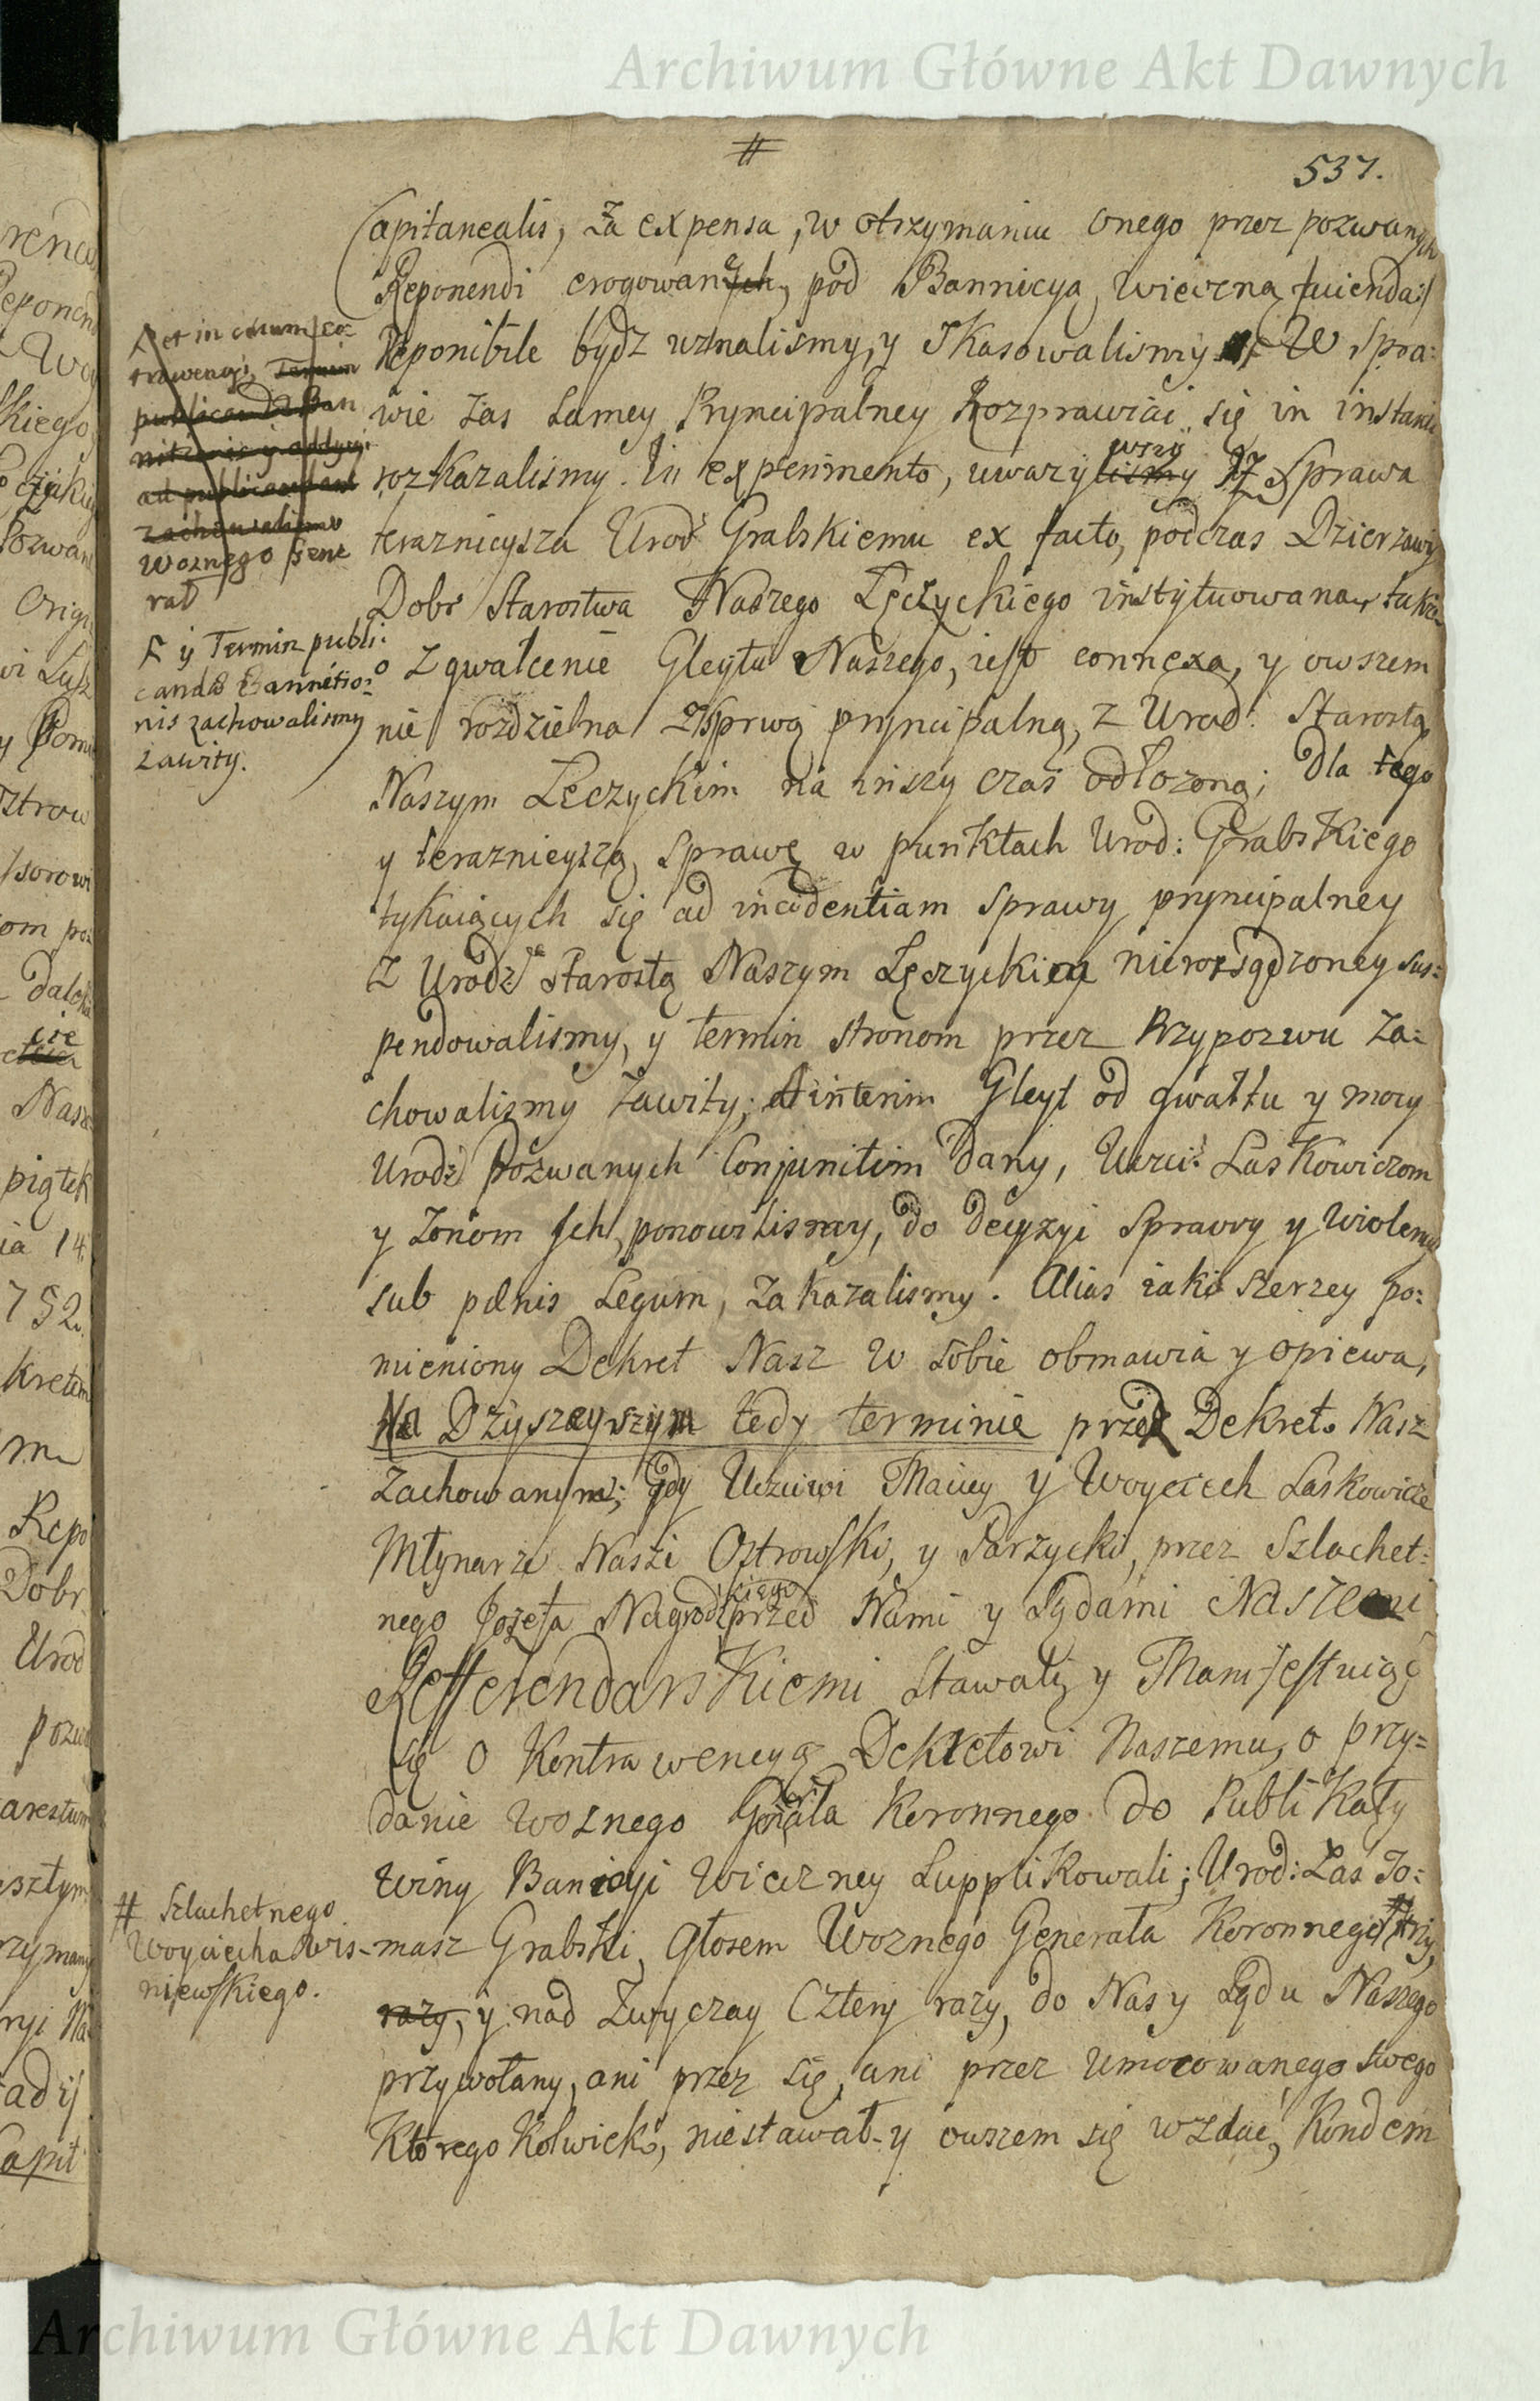 Archiwum Główne Akt Dawnych
#
537.
Capitanealis, za expensa, w otrzymaniu onego przez pozwanych
Reponendi erogowane, pod Bannicyą wieczną
Reponibile bydź uznalismy, y skasowalismy W spra:
wie zas samey Pryncipalney Rozprawiać się in instanti
rozkazalismy. In experimento, uwazywszy Iż Sprawa
teraznieysza Urod: Grabskiemu ex facto, podczas Dzierzawy
Dobr Starostwa Naszego Łęczyckiego instytuowana, także
o zgwałcenie Gleytu Naszego, iest connexa, y owszem
nie rozdzielna z Sprwą pryncipalną, z Urod: Starostą
Naszym Łęczyckim na inszy czas odłozoną; dla tego
y teraznieyszą sprawę w punktach Urod: Grabskiego
tykaiących się ad incidentiam sprawy pryncipalney
z Urodz: Starostą Naszym Łęczyckim nierozsądzoney sus:
pendowalismy, y termin stronom przez Przypozwu za:
chowalismy zawity; Ad interim Gleyt od gwałtu y mocy
Urodz: Pozwanych Conjunctim dany, Uczci: Laskowiczom
y zonom Ich ponowilismy, do decyzyi sprawy y wiolency
sub pœnis Legum, zakazalismy. Alias iako szerzey po:
mieniony Dekret Nasz w sobie obmawia y opiewa,
Na Dzyszeyszym tedy terminie przez Dekret Nasz
zachowanym; gdy Uczciwi Maciey y Woyciech Laskowicze
Młynarze Naszi Ostrowski, y Parzycki, przez Szlachet:
nego Jozefa Nagrodzkiego przed Nami y Sądami Naszemi
Refferendarskiemi stawali y Manifestuiąc
się o Kontrawencyą Dekretowi Naszemu, o przy=
danie Woznego Gnała Koronnego do Publikaty
winy Banicyi Wieczney supplikowali; Urod: zas To:
masz Grabski, głosem Woznego Generała Koronnego # trzy,
razy, y nad zwyczay cztery razy, do Nas y Sądu Naszego
przywołany, ani przez się, ani przez umocowanego swego
Ktorego Kolwiek, niestawał y owszem się wzdać, Kondem
et in casum con
trawencyi, Termin
publicandæ Ban
nitionis y addycyi
ad publicandam
zachowalismy
Woznego Gene
rał
y Termin publi:
candæ Bannitio:
nis zachowalismy
zawity.
# Szlachetnego
Woyciecha Wis-
niewskiego.
Archiwum Główne Akt Dawnych